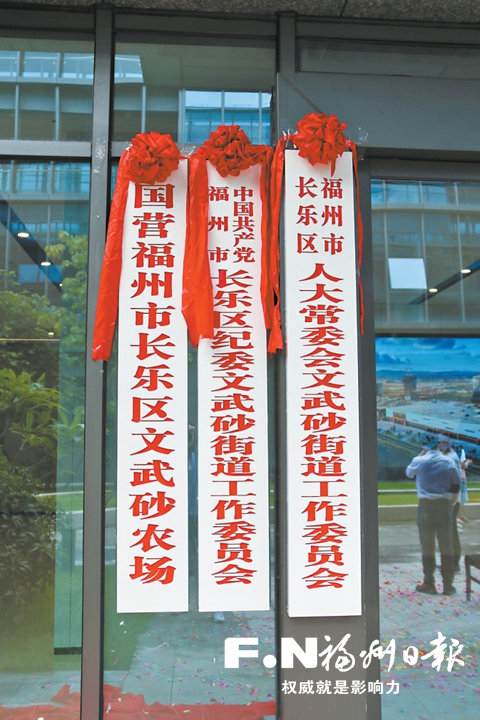 国营福州市长乐区文武砂农场
中国共产党
福州市
长乐区纪委文武砂街道工作委员会
福州市
长乐区
人大常委会文武砂街道工作委员会
F.N福州日报
权威就是影响力